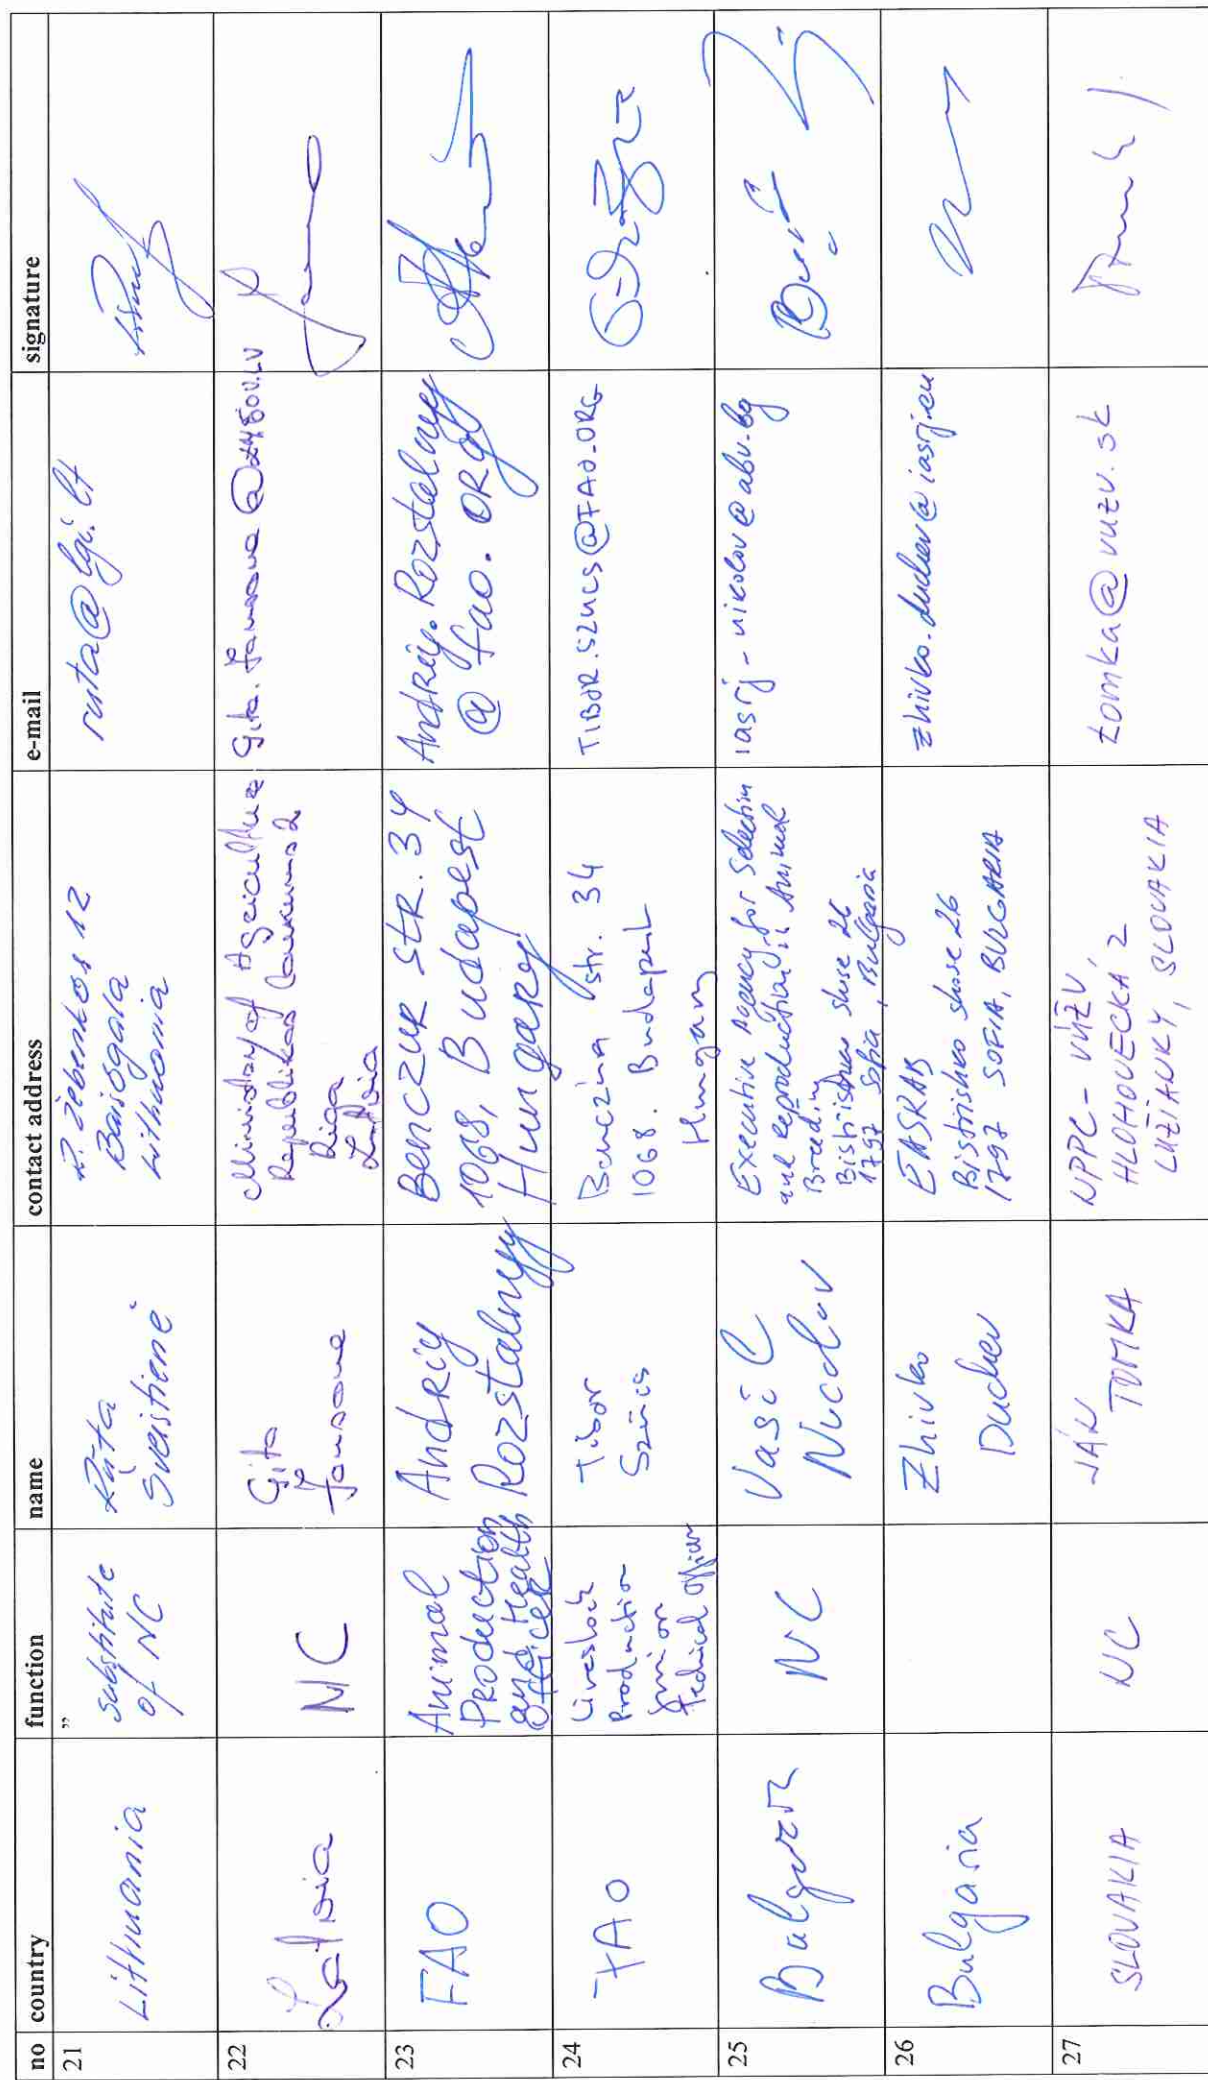 no country function name contact address e-mail signature
21
Lithuania
"
substitute
of NC
Rūta
Šveistienė
R. Žebenkos 12
Baisogala
Lithuania
ruta@lgi.lt
22
Latvia
NC
Gita
Jansone
Ministry of Agriculture
Republikas laukums 2
Riga
Latvia
23
FAO
Animal
Production
and Health
Officer
Andriy
Rozstalnyy
Benczur str. 34
1068, Budapest
Hungary
Andriy.Rozstalnyy
@fao.org
24
FAO
Livestock
Production
Junior
Technical Officer
Tibor
Szücs
Benczúr str. 34
1068. Budapest
Hungary
TIBOR.SZUCS@FAO.ORG
25
NC
Executive Agency for Selection
and reproduction in Animal
Breeding
Bistrishko shose 26
1797 Sofia, Bulgaria
iasrj-nikolov@abv.bg
26
Bulgaria
Zhivko
Duchev
EASRAB
Bistrishko shose 26
1797 SOFIA, BULGARIA
zhivko.duchev@iasrj.eu
27
SLOVAKIA
NC
JÁN
TOMKA
NPPC - VÚŽV,
HLOHOVECKÁ 2
LUŽIANKY, SLOVAKIA
tomka@vuzv.sk